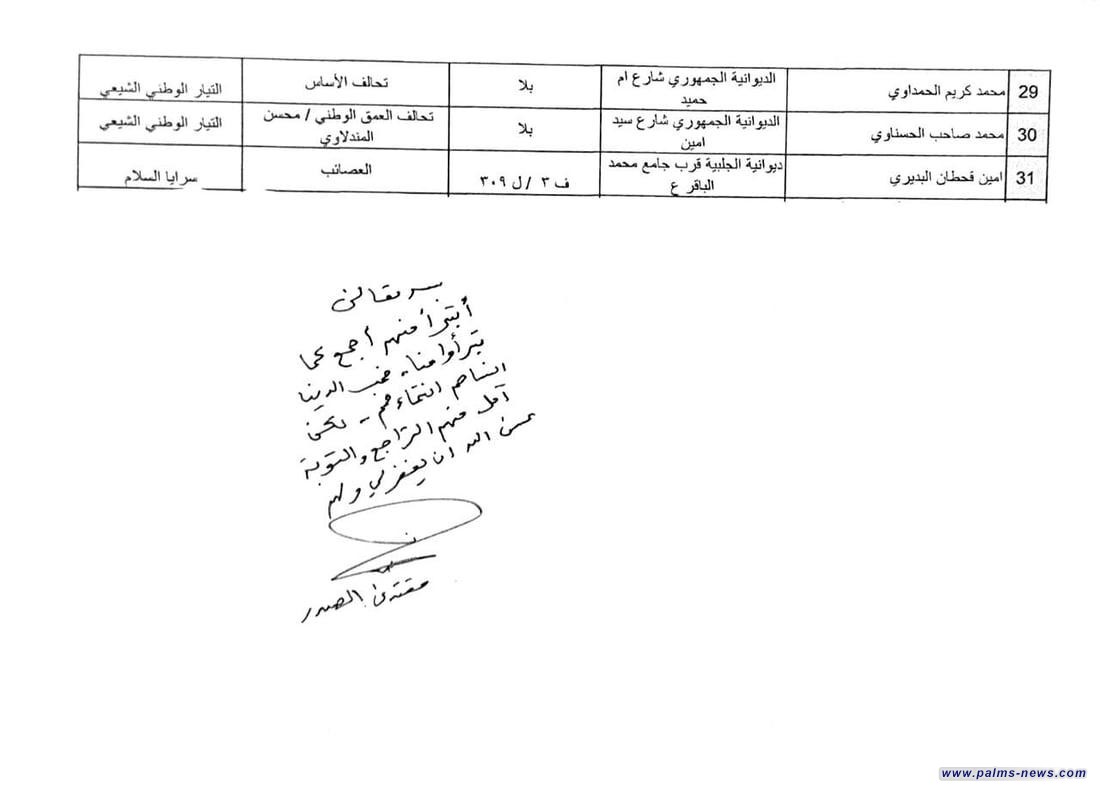 29 محمد كريم الحمداوي الديوانية الجمهوري شارع ام حميد بلا تحالف الأساس التيار الوطني الشيعي
30 محمد صاحب الحسناوي الديوانية الجمهوري شارع سيد امين بلا تحالف العمق الوطني / محسن المندلاوي التيار الوطني الشيعي
31 امين قحطان البديري ديوانية الجلبية قرب جامع محمد الباقر ع ف ٣ / ل ٣٠٩ العصائب سرايا السلام
بسمه تعالى
أتبرأ منهم أجمع كما
تبرأوا منا، فحب الدنيا
انساهم انتماءهم - لكن
آمل منهم التراجع والتوبة
عسى الله ان يغفر لي ولهم
مقتدى الصدر
www.palms-news.com